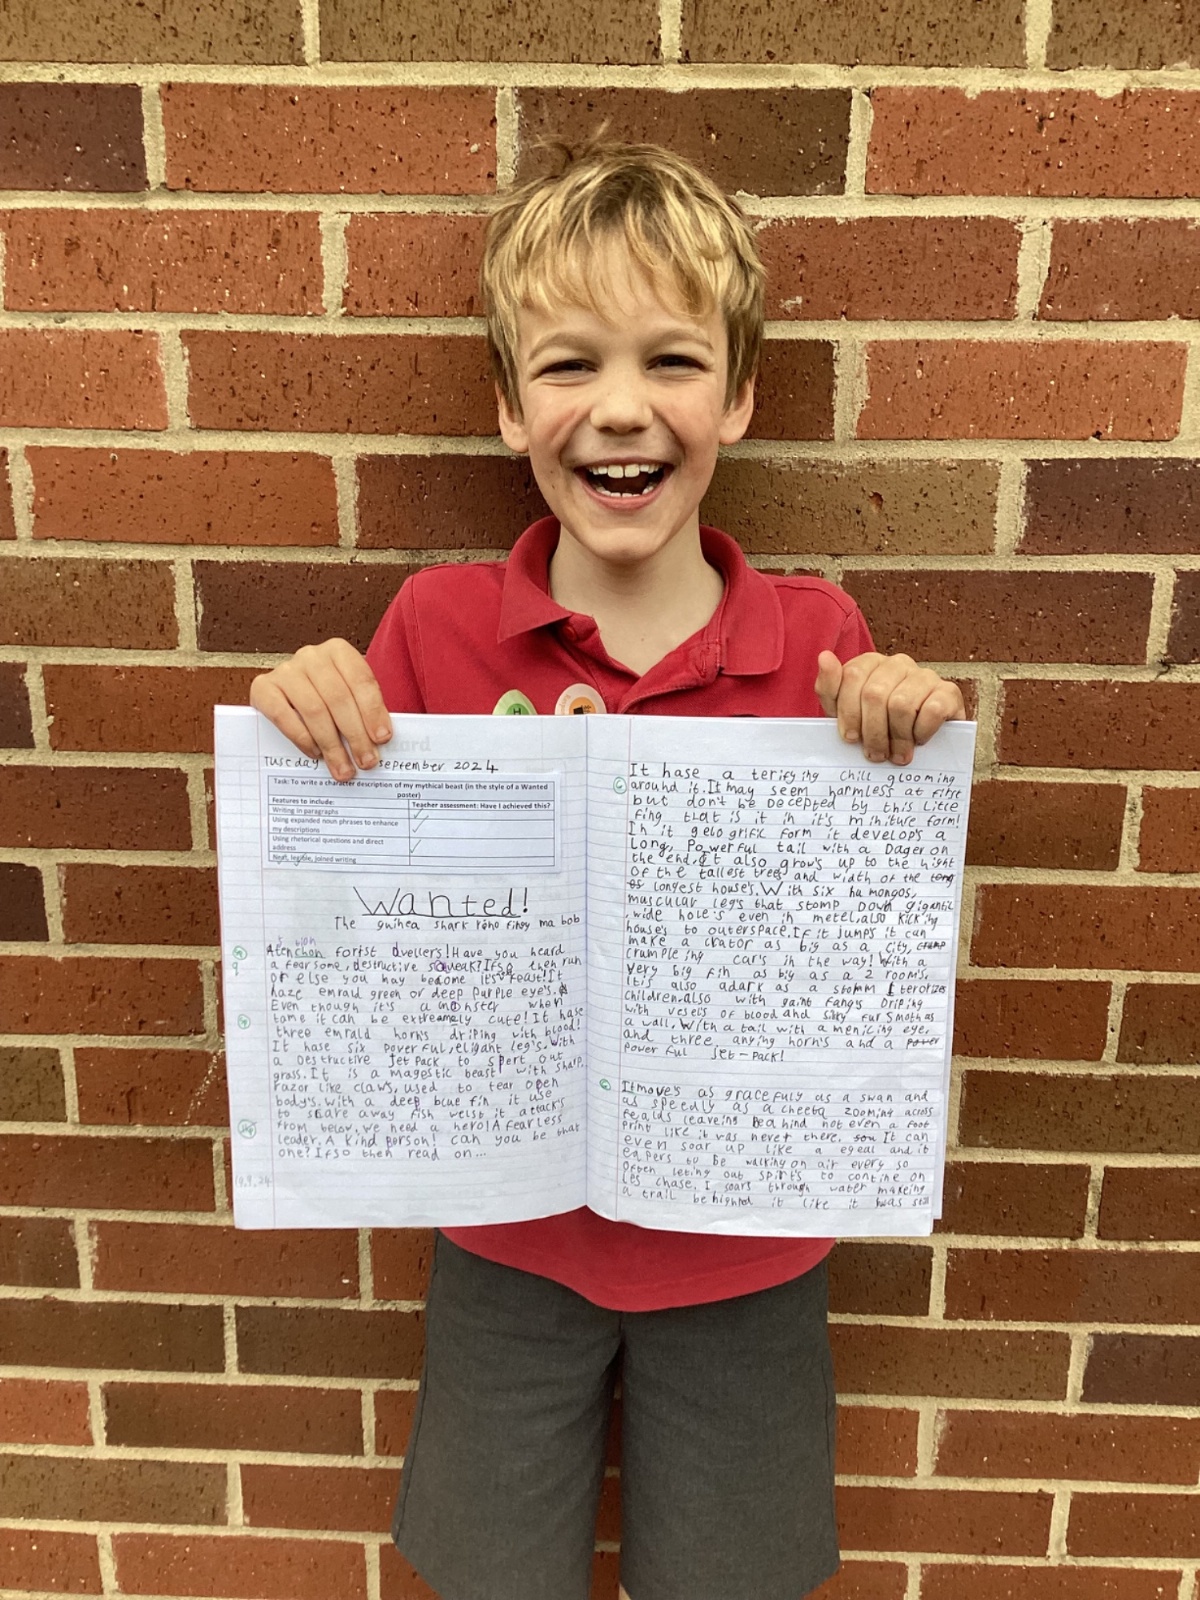 Tuesday september 2024
Task: To write a character description of my mythical beast (in the style of a Wanted poster)
Features to include: Teacher assessment: Have I achieved this?
Writing in paragraphs
Using expanded noun phrases to enhance
my descriptions
Using rhetorical questions and direct
address
Neat, legible, joined writing
Wanted!
The guinea shark rhino fingy ma bob
tion
Atenchon forist dwellers! Have you heard
a fearsome, destructive squeak? If so then run
or else you may become it's feast! It
haze emrald green or deep purple eye's.
Even though it's a monster when
tame it can be extreamely cute! It hase
three emrald horn's driping with blood!
It hase six powerful, eligant leg's. With
a Destructive Jet Pack to spert out
grass. It is a magestic beast with sharp,
razor like claws, used to tear open
body's. With a deep blue fin it use
to scare away fish welst it attack's
from below. We need a hero! A fearless
leader. A kind person! Can you be that
one? If so then read on...
19.9.24
It hase a terifying chill glooming
around it. It may seem harmless at first
but don't be Decepted by this Little
Fing that is it in it's miniture form!
In it gelo grific form it develop's a
Long, Powerful tail with a Dager on
the end, It also grow's up to the hight
of the tallest trees and width of the
longest house's. With six humongos,
muscular leg's that stomp down gigantic
, wide hole's even in metel, also kicking
house's to outerspace. If it jumps it can
make a crator as big as a city, cramp
crumpleing car's in the way! With a
very big fin as big as a 2 room's,
It's also adark as a stomm terorizes
children. also with gaint fangs Driping
with vesels of blood and silky fur smoth as
a wall. With a tail with a menicing eye,
and three, anying horn's and a power
power ful Jet-pack!
Itmove's as gracefuly as a swan and
as speedly as a cheeta zooming across
fealds leaveing beahind not even a foot
print like it was never there. It can
even soar up like a egeal and it
eapers to be walking on air every so
often leting out spirt's to contine on
it's chase. I soars through water makeing
a trail behighnd it like it was still